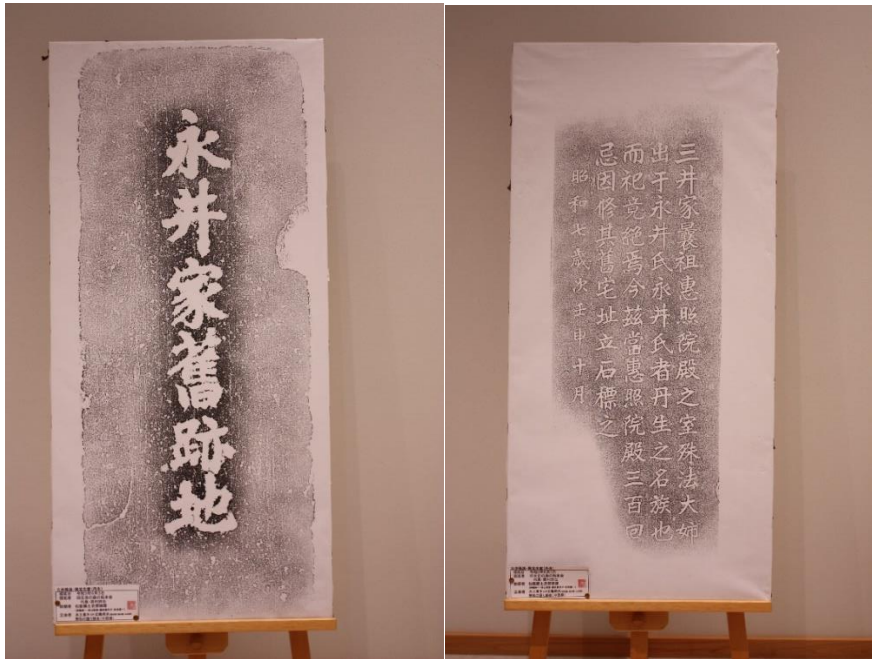 永井家舊跡地
三井家曩祖惠照院殿之室殊法大姉
出于永井氏永井氏者丹生之名族也
而祀竟絶焉今玆當惠照院殿三百回
忌因修其舊宅址立石標之
昭和七歳次壬申十月